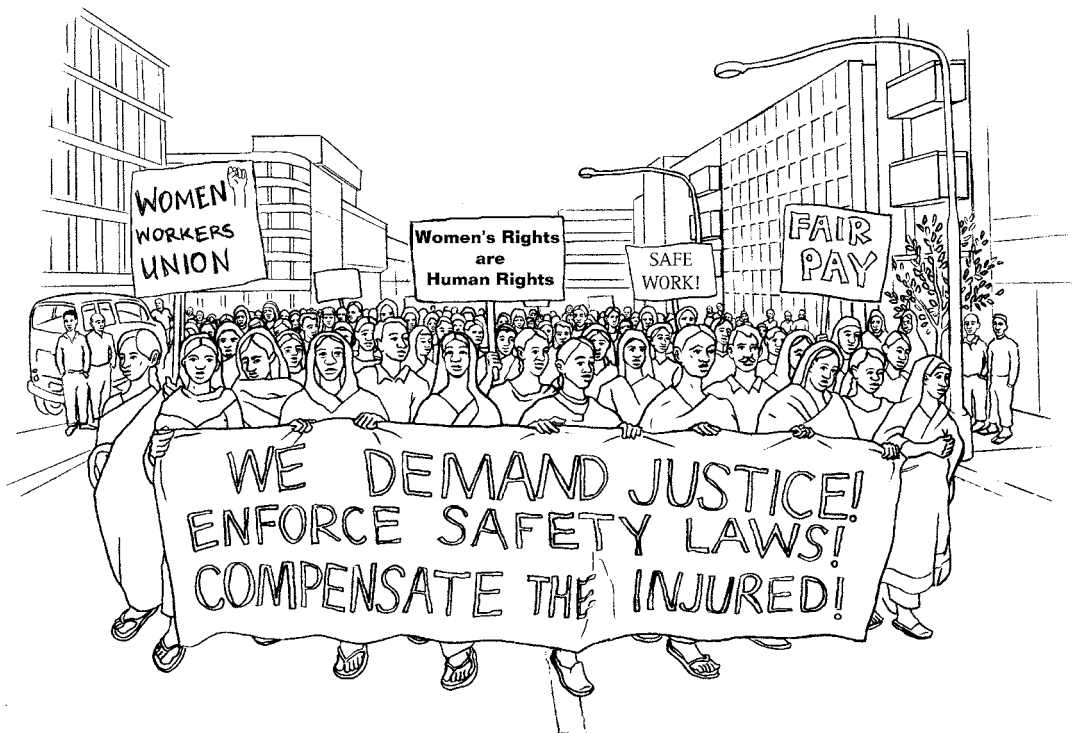 WOMEN
WORKERS
UNION
Women's Rights
are
Human Rights
SAFE
WORK!
FAIR
PAY
WE DEMAND JUSTICE!
ENFORCE SAFETY LAWS!
COMPENSATE THE INJURED!